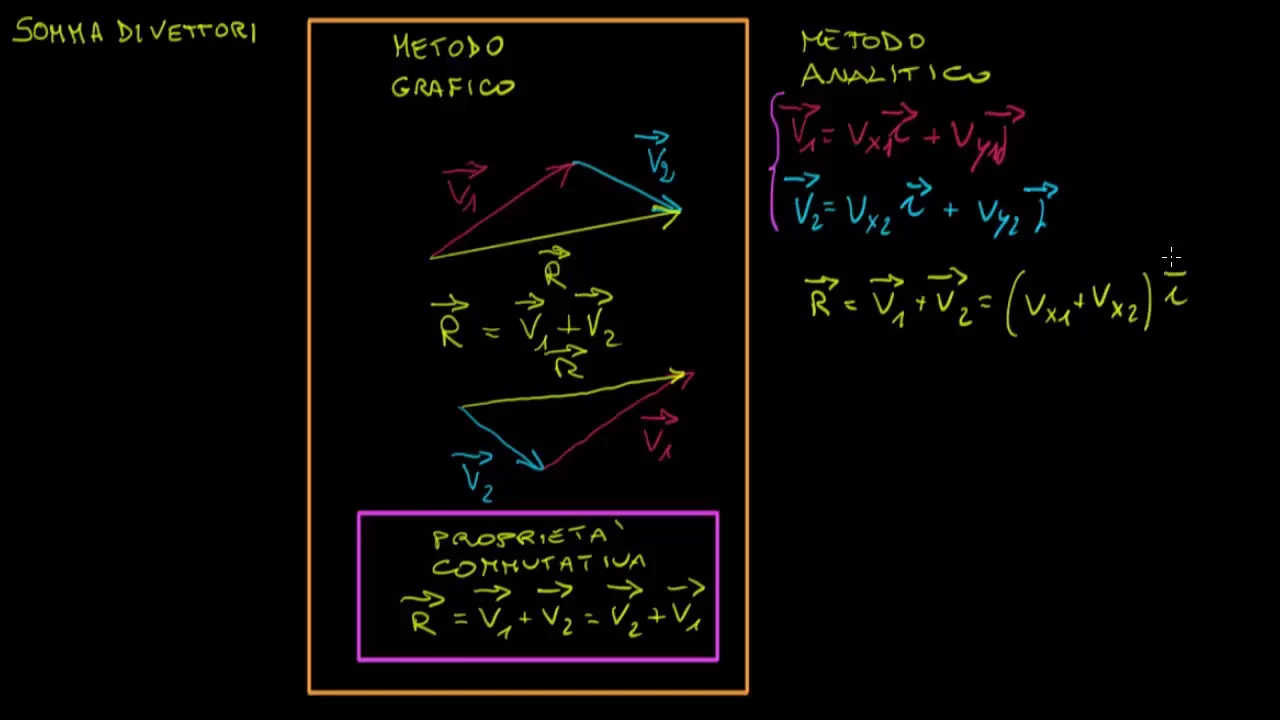 SOMMA DI VETTORI
METODO
GRAFICO
V₁
V₂
R
R = V₁ + V₂
R
V₁
V₂
PROPRIETA'
COMMUTATIVA
R = V₁ + V₂ = V₂ + V₁
METODO
ANALITICO
V₁ = Vx1 i + Vy1 j
V₂ = Vx2 i + Vy2 j
R = V₁ + V₂ = (Vx1 + Vx2) i